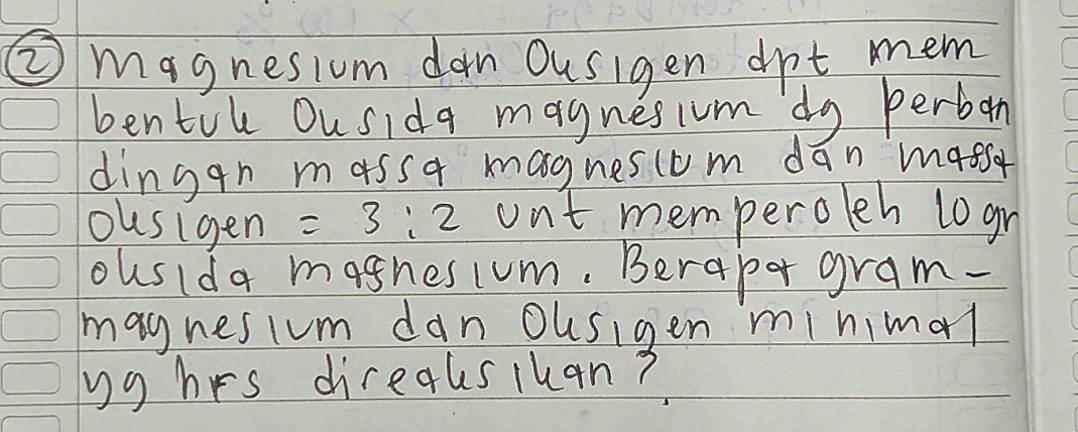 ② Magnesium dan Oksigen dpt mem
bentuk Oksida magnesium dg perban
dingan massa magnesium dan massa
oksigen = 3 : 2 unt memperoleh 10 gr
oksida magnesium. Berapa gram -
magnesium dan Oksigen minimal
yg hrs direaksikan?